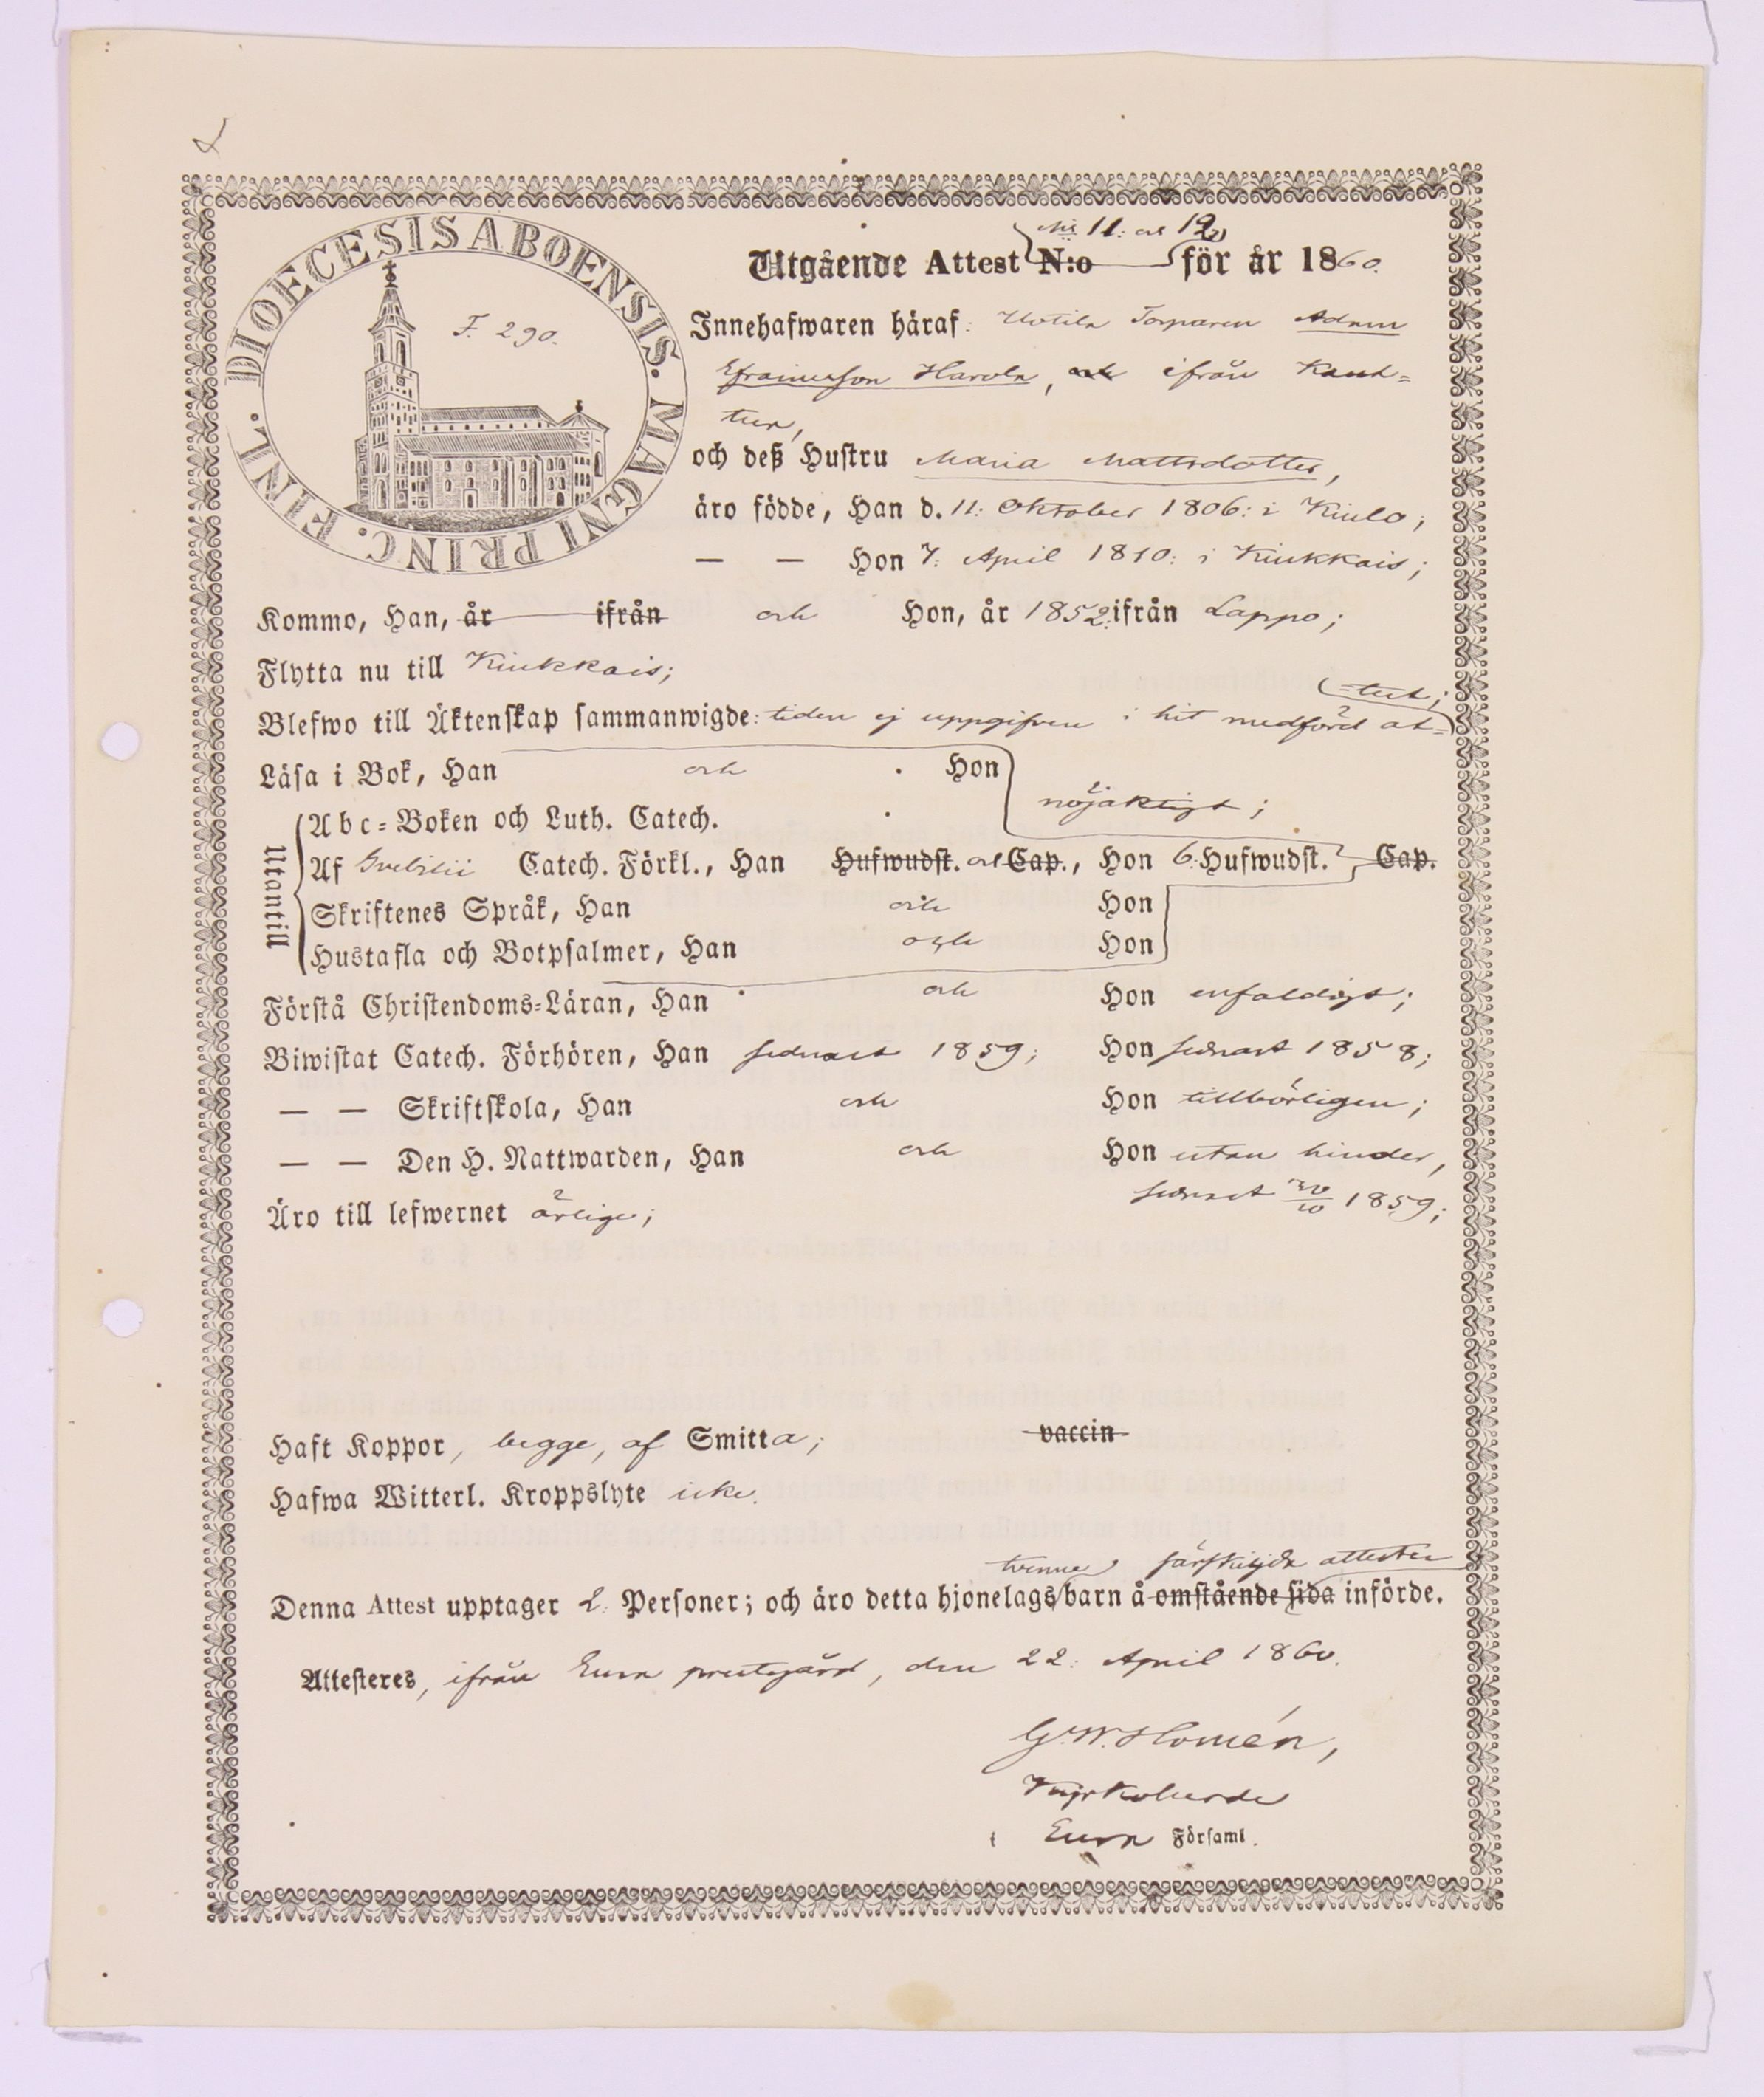 DIOECESIS ABOENSIS. MAGNI PRINC. FINL.
F. 290.
N:is 11: och 12,
Utgående Attest N:o för år 1860.
Innehafwaren häraf: Torparen Adam
Efraimsson Harola, och ifrån Kaut=
tua,
och deß Hustru Maria Mattsdotter,
äro födde, Han d. 11: Oktober 1806: i Kiulo;
— — Hon 7: April 1810: i Kiukkais;
Kommo, Han, år ifrån och Hon, år 1852: ifrån Lappo;
Flytta nu till Kiukkais;
=test;
Blefwo till Äktenskap sammanwigde: tiden ej uppgifven i hit medförd at=
Läsa i Bok, Han och Hon
nöjaktigt;
Utantill
Abc=Boken och Luth. Catech.
Af Svebilii Catech. Förkl., Han Hufwudst. och Cap., Hon 6: Hufwudst. Cap.
Skriftenes Språk, Han och Hon
Hustafla och Botpsalmer, Han och Hon
Förstå Christendoms=Läran, Han och Hon enfaldigt;
Biwistat Catech. Förhören, Han sednast 1859; Hon sednast 1858;
— — Skriftskola, Han och Hon tillbörligen;
— — Den H. Nattwarden, Han och Hon utan hinder,
sednast 30/10 1859;
Äro till lefwernet ärlige;
Haft Koppor, begge, af Smitta; vaccin
Hafwa Witterl. Kroppslyte icke.
tvenne särskilda attester
Denna Attest upptager 2 Personer; och äro detta hjonelags barn å omstående sida införde.
Attesteres, ifrån Eura prestgård, den 22: April 1860.
G. W. Homén,
Kyrkoherde
i Eura Församl.